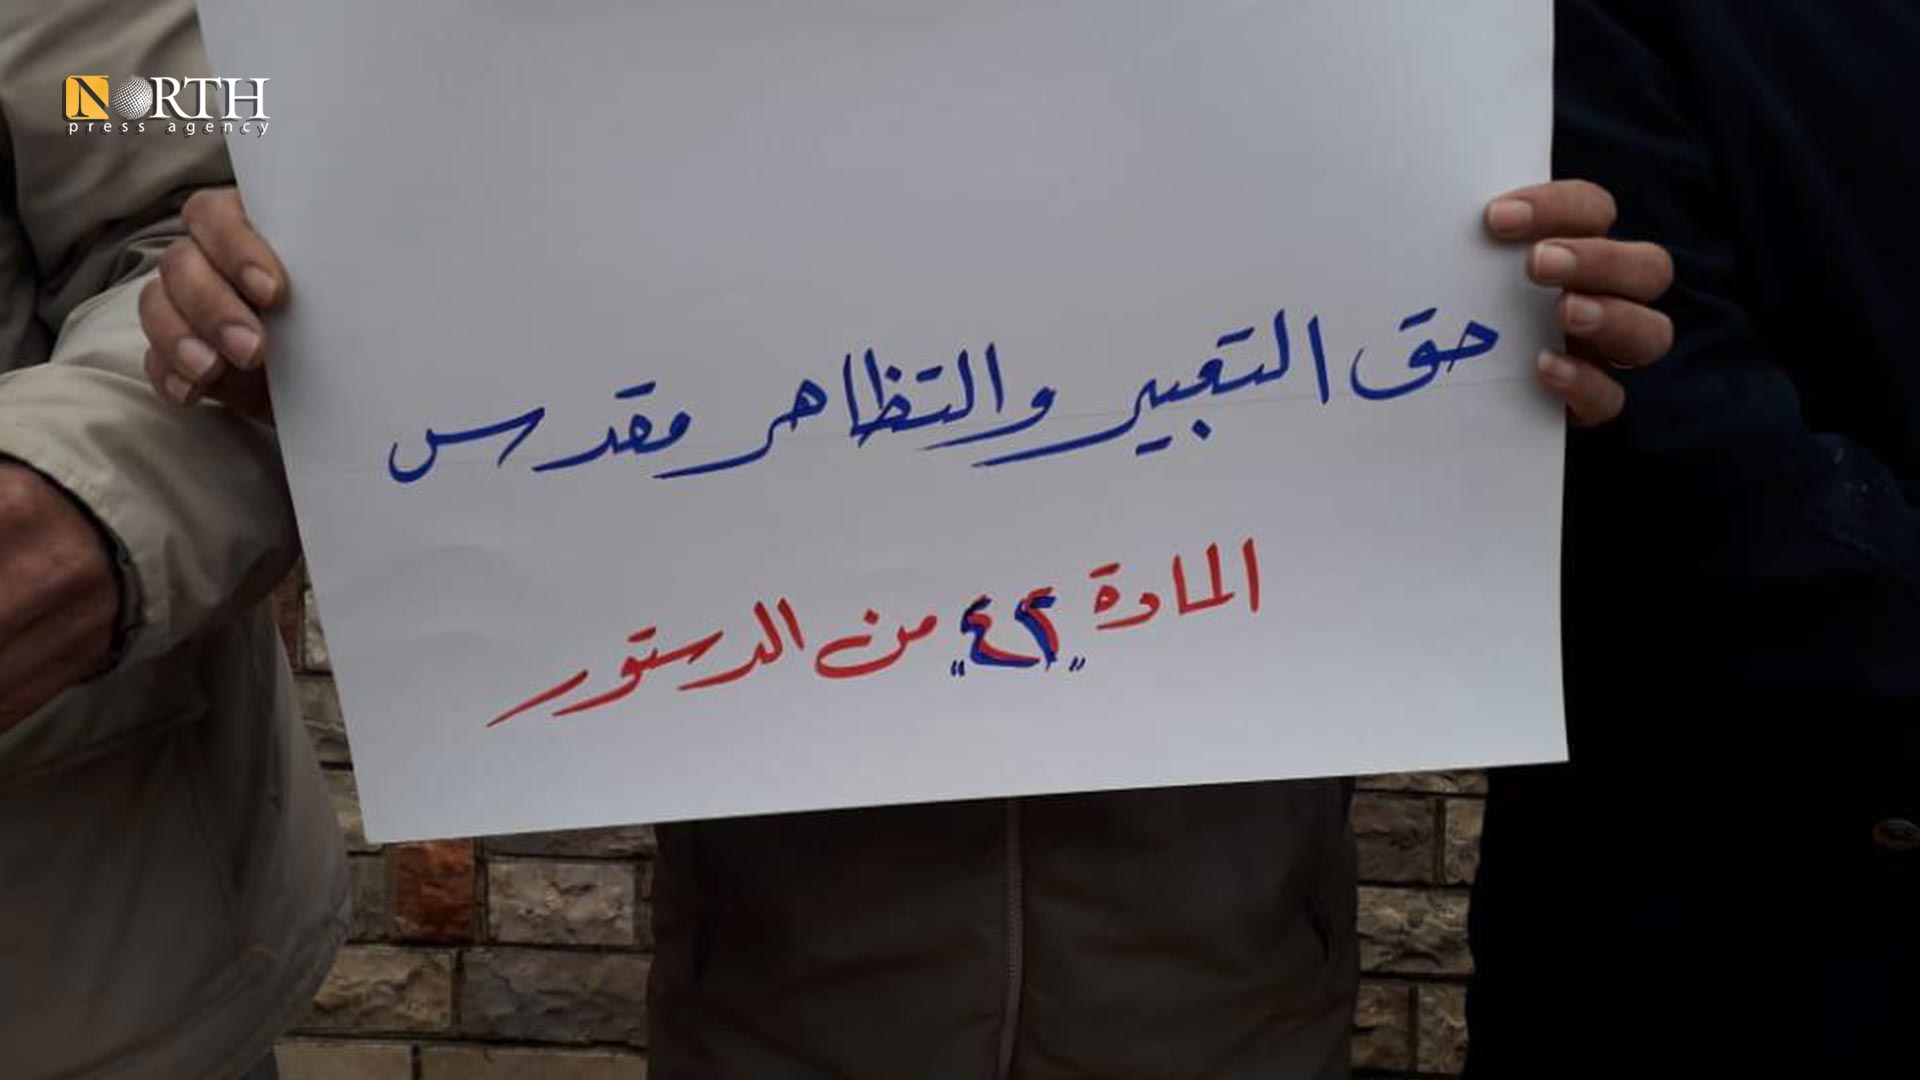 NORTH
press agency
حق التعبير والتظاهر مقدس
المادة "٤٢" من الدستور